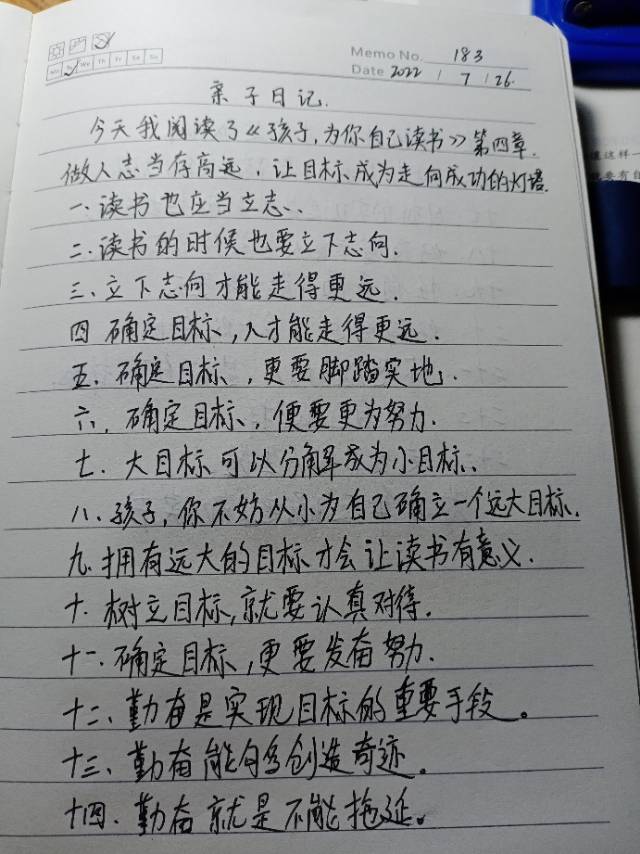 Memo No. 183
Mo Tu We Th Fr Sa Su
Date 2022 / 7 / 26
亲子日记.
今天我阅读了《孩子,为你自己读书》第四章.
做人志当存高远,让目标成为走向成功的灯塔
一、读书也应当立志.
二.读书的时候也要立下志向.
三、立下志向才能走得更远.
四 确定目标,人才能走得更远.
五.确定目标,更要脚踏实地.
六,确定目标,便要更为努力.
七.大目标可以分解成为小目标.
八、孩子,你不妨从小为自己确立一个远大目标.
九.拥有远大的目标才会让读书有意义.
十.树立目标,就要认真对待.
十一.确定目标,更要发奋努力.
十二、勤奋是实现目标的重要手段。
十三、勤奋能够创造奇迹。
十四.勤奋就是不能拖延。